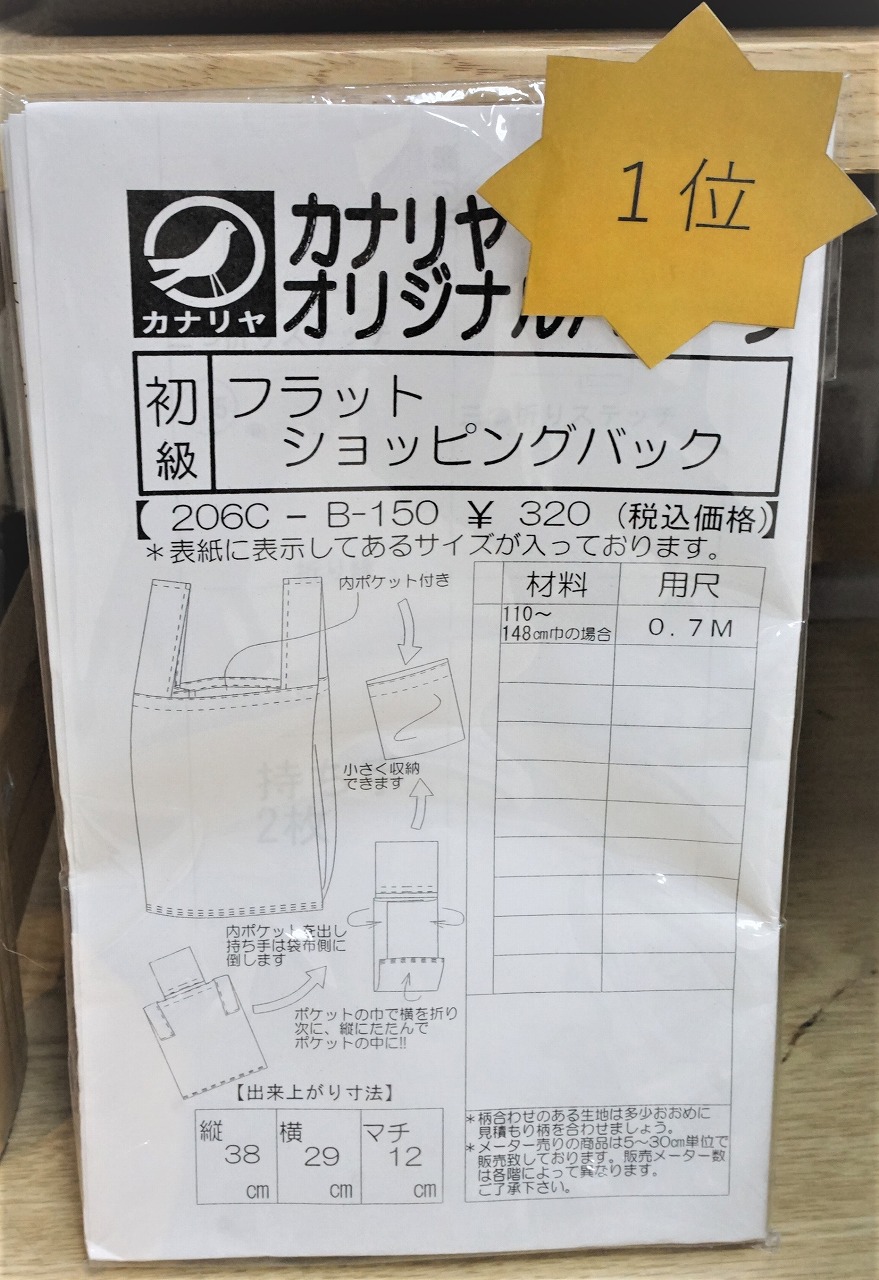 1位
カナリヤ
カナリヤ
オリジナル
初級
フラット
ショッピングバック
【 206C - B-150 ¥ 320 (税込価格)】
*表紙に表示してあるサイズが入っております。
内ポケット付き
小さく収納
できます
内ポケットを出し
持ち手は袋布側に
倒します
ポケットの巾で横を折り
次に、縦にたたんで
ポケットの中に!!
材料 用尺
110〜
148cm巾の場合 0.7M
【出来上がり寸法】
縦 横 マチ
38 29 12
cm cm cm
*柄合わせのある生地は多少おおめに
見積もり柄を合わせましょう。
*メーター売りの商品は5〜30cm単位で
販売致しております。販売メーター数
は各階によって異なります。
ご了承下さい。